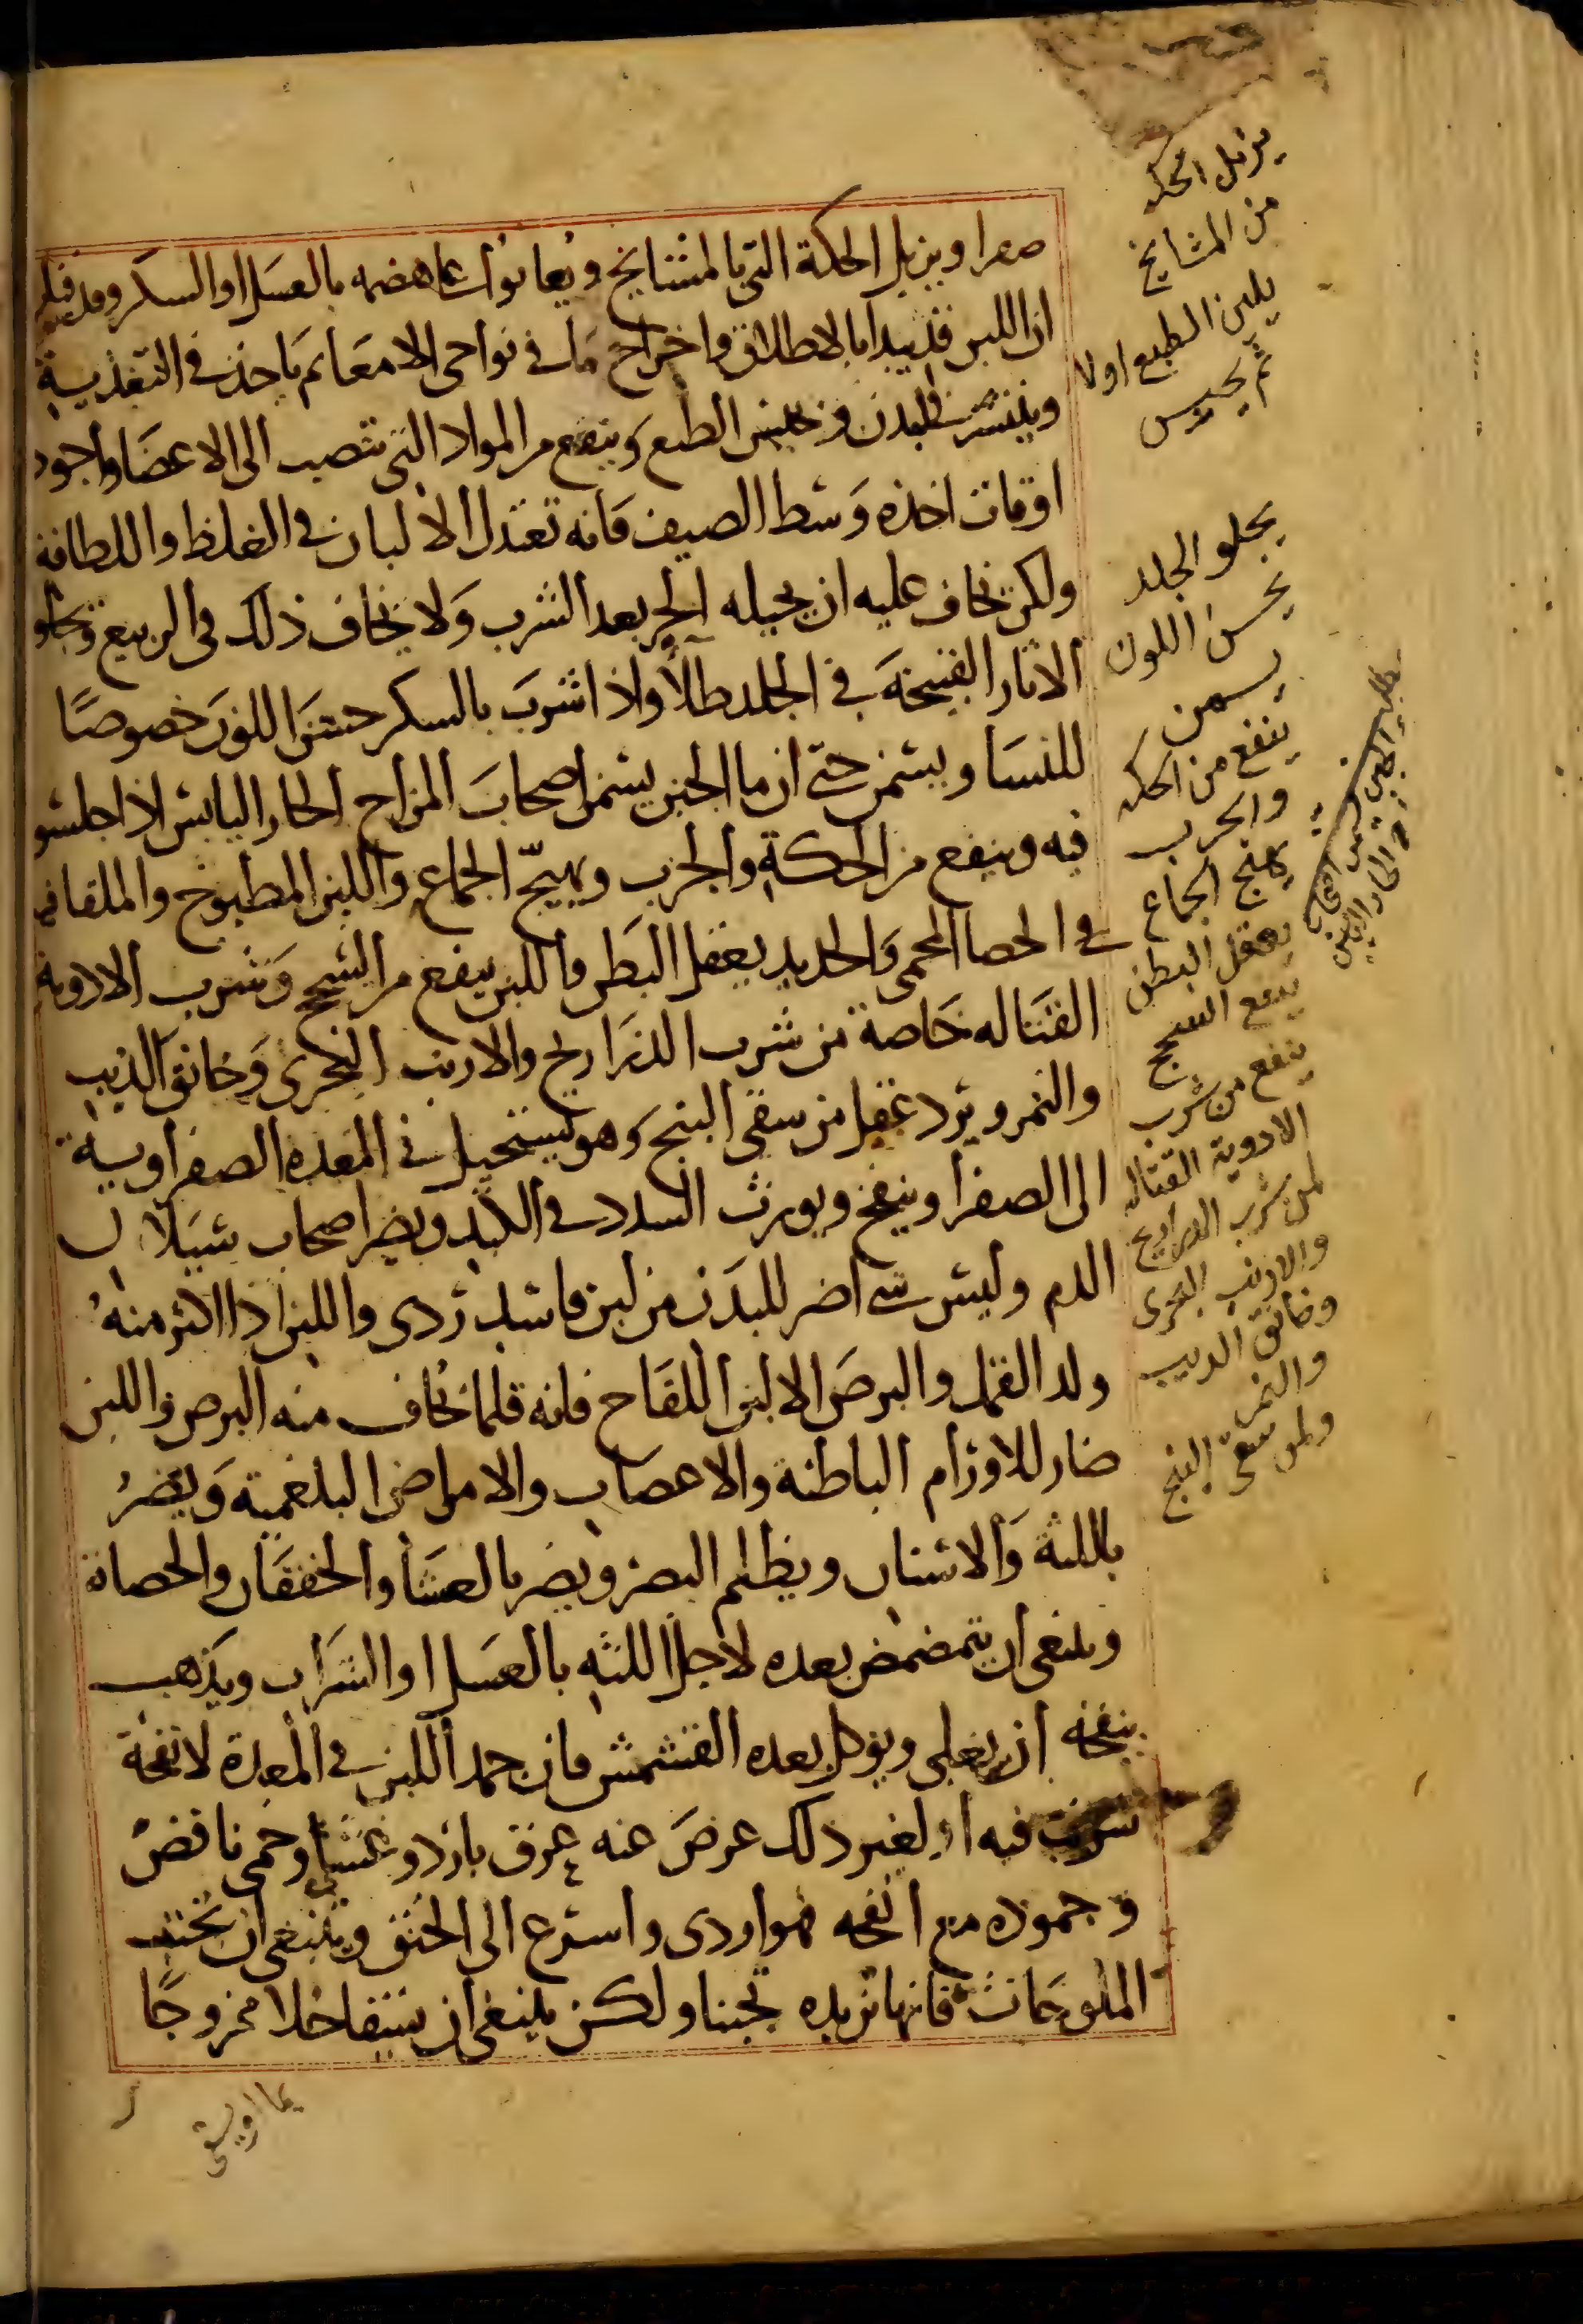 صفرا ويزيل الحكة التي بالمشايخ ويعانوا على هضمه بالعسل او السكر وقد قيل
ان اللبن قد يبدا بالاطلاق واخراج ما في نواحي الامعا ثم ياخذ في التغذية
وينتشر في البدن ويحبس الطبع وينفع من المواد التي تنصب الى الاعضا واجود
اوقات اخذه وسط الصيف فانه تعتدل الالبان في الغلظ واللطافة
ولكن نخاف عليه ان يحيله الحر بعد الشرب ولا يخاف ذلك في الربيع ويجلو
الاثار القبيحة في الجلد طلاً واذا شرب بالسكر حسن اللون خصوصًا
للنسا ويسمن حتى ان ما الجبن يسمن اصحاب المزاج الحار اليابس اذا جلسو
فيه وينفع من الحكة والجرب ويهيّج الجماع واللبن المطبوخ والملقا فيه
في الحصا المحمى والحديد يعقل البطن واللبن ينفع من السحج وشرب الادوية
القتاله خاصة من شرب الذراريح والارنب البحرى وخانق الديب
والنمر ويرد عقل من سقي البنج وهو يستحيل في المعده الصفراوية
الى الصفرا وينفخ ويورث السدد في الكبد ويضر اصحاب سيلان
الدم وليس شي اضر للبدن من لبن فاسد ردى واللبن اذا اكثر منه
ولد القمل والبرص الا لبن اللقاح فانه قلما نخاف منه البرص واللبن
ضار للاورام الباطنة والاعصاب والامراض البلغمية ويضر
باللثة والاسنان ويظلم البصر ويضر بالعشا والخفقان والحصاة
وينبغى ان يتمضمض بعده لاجل اللثه بالعسل او الشراب ويذهب
بنفخه ان يغلى ويوكل بعده القشمش فان جمد اللبن في المعدة لانفحة
شربت فيه او لغير ذلك عرض عنه عرق بارد وغشي وحمى نافض
وجموده مع انفحه فهو اردى واسرع الى الخنق وينبغى ان تجتنب
الملوحات فانها تزيده تجبنا ولكن ينبغى ان يسقا خلا ممزوجًا
بما اويسقى
يزيل الحكه
من المشايخ
يلين الطبع اولا
ثم يحبس
يجلو الجلد
يحسن اللون
يسمن
ينفع من الحكه
والجرب
يهيج الجماع
يعقل البطن
ينفع السحج
ينفع من شرب
الادوية القتاله
لمن شرب الدراريح
والارنب البحرى
وخانق الديب
والنمر
ولمن سقى البنج